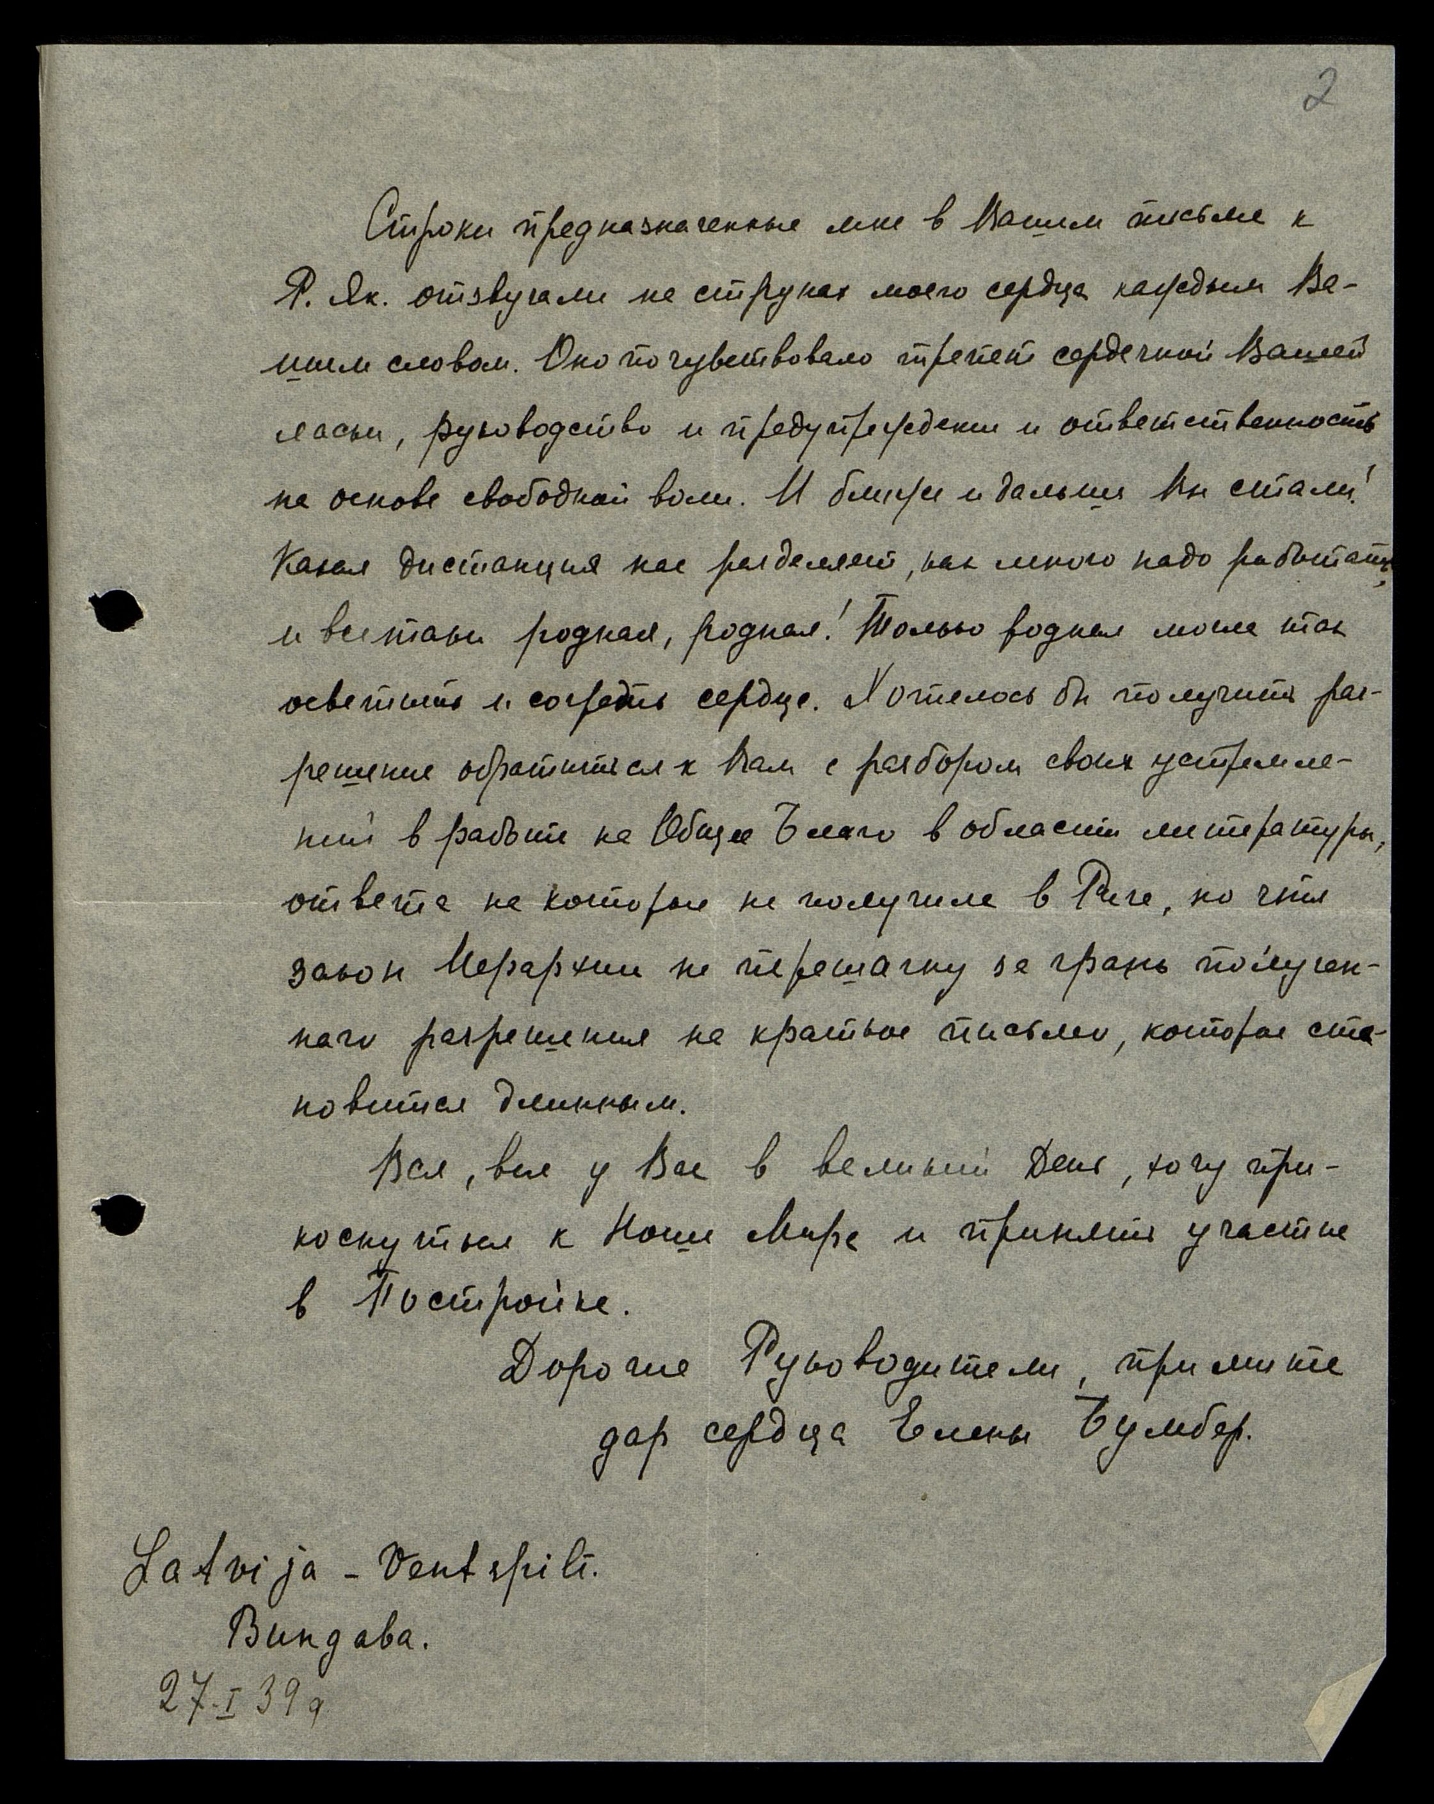 2
Строки предназначенные мне в Вашем письме к
Р. Як. отзвучали на струнах моего сердца каждым Ва-
шим словом. Оно почувствовало трепет сердечной Вашей
ласки, руководство и предупреждение и ответственность
на основе свободной воли. И ближе и дальше Вы стали!
Какая дистанция нас разделяет, как много надо работать,
и все таки родная, родная! Только родная могла так
осветить и согреть сердце. Хотелось бы получить раз-
решение обратиться к Вам с разбором своих устремле-
ний в работе на Общее Благо в области литературы,
ответа на которое не получила в Риге, но чтя
закон Иерархии не перешагну за грань получен-
наго разрешения на краткое письмо, которое ста-
новится длинным.
Вся, вся у Вас в великий День, хочу при-
коснуться к Ноше Мира и принять участие
в Постройке.
Дорогие Руководители, примите
дар сердца Елены Бумбер.
Latvija - Ventspilī.
Виндава.
27-I 39 г